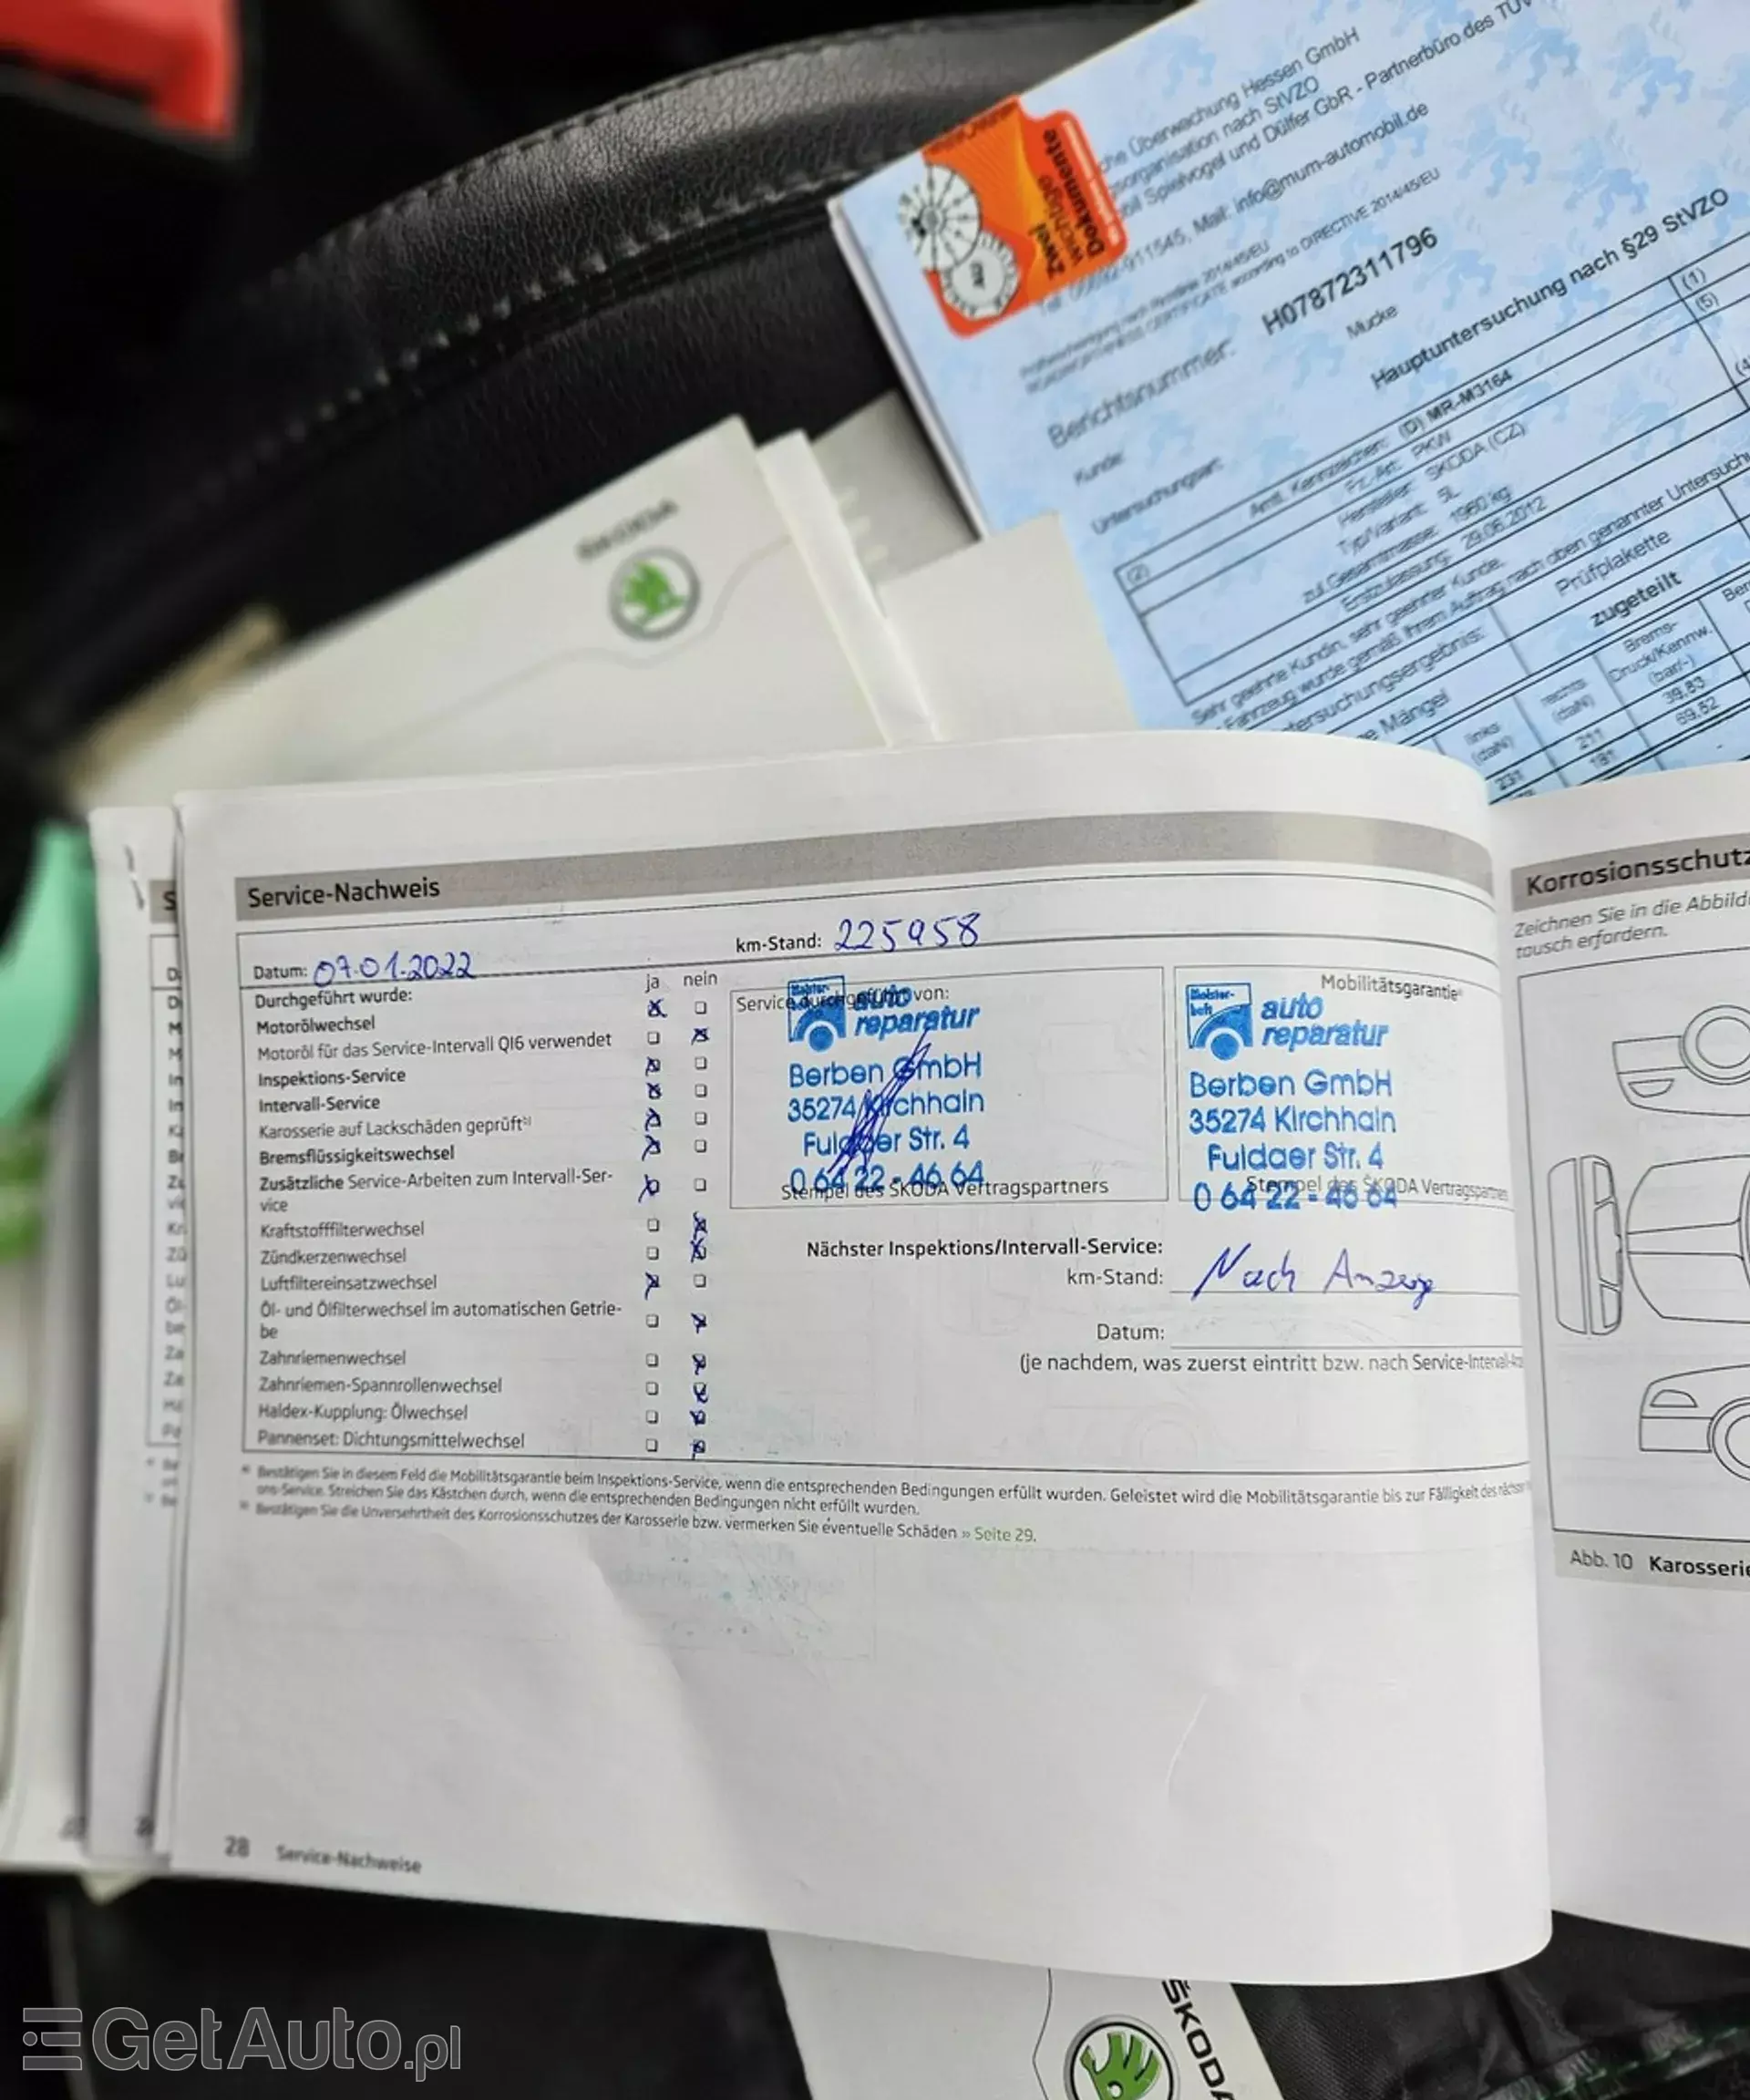 Zwei
wichtige
Dokumente
che Überwachung Hessen GmbH
sorganisation nach StVZO
bil Spielvogel und Dülfer GbR - Partnerbüro des TÜV
911545, Mail: info@mum-automobil.de
according to DIRECTIVE 2014/45/EU
Berichtsnummer: H07872311796
Kunde: Mucke
Untersuchungsart: Hauptuntersuchung nach §29 StVZO
(1)
(5)
(2)
Amtl. Kennzeichen: (D) MR-M3164
Fz.-Art: PKW
Hersteller: SKODA (CZ)
Typ/Variant: 5L
zul.Gesamtmasse: 1960 kg
Erstzulassung: 29.06.2012
Sehr geehrte Kundin, sehr geehrter Kunde,
Fahrzeug wurde gemäß Ihrem Auftrag nach oben genannter Untersuch
tersuchungsergebnis:
Prüfplakette
zugeteilt
e Mängel
links
(daN)
rechts
(daN)
Brems-
Druck/Kennw.
(bar/-)
231 211 39.83
181 69.52
ŠKODA
Service-Nachweis
Datum: 07.01.2022
km-Stand: 225958
Durchgeführt wurde:
ja nein
Motorölwechsel
Motoröl für das Service-Intervall QI6 verwendet
Inspektions-Service
Intervall-Service
Karosserie auf Lackschäden geprüft
Bremsflüssigkeitswechsel
Zusätzliche Service-Arbeiten zum Intervall-Ser-
vice
Kraftstofffilterwechsel
Zündkerzenwechsel
Luftfiltereinsatzwechsel
Öl- und Ölfilterwechsel im automatischen Getrie-
be
Zahnriemenwechsel
Zahnriemen-Spannrollenwechsel
Haldex-Kupplung: Ölwechsel
Pannenset: Dichtungsmittelwechsel
Service durchgeführt von:
Meister-
auto
reparatur
Berben GmbH
35274 Kirchhain
Fuldaer Str. 4
0 64 22 - 46 64
Stempel des ŠKODA Vertragspartners
Mobilitätsgarantie
Meister-
haft
auto
reparatur
Berben GmbH
35274 Kirchhain
Fuldaer Str. 4
0 64 22 - 46 64
Stempel des ŠKODA Vertragspartners
Nächster Inspektions/Intervall-Service:
km-Stand: Nach Anzeige
Datum:
(je nachdem, was zuerst eintritt bzw. nach Service-Intervall-Anz
Bestätigen Sie in diesem Feld die Mobilitätsgarantie beim Inspektions-Service, wenn die entsprechenden Bedingungen erfüllt wurden. Geleistet wird die Mobilitätsgarantie bis zur Fälligkeit des nächsten
ons-Service. Streichen Sie das Kästchen durch, wenn die entsprechenden Bedingungen nicht erfüllt wurden.
Bestätigen Sie die Unversehrtheit des Korrosionsschutzes der Karosserie bzw. vermerken Sie eventuelle Schäden » Seite 29.
28 Service-Nachweise
Korrosionsschutz
Zeichnen Sie in die Abbild
tausch erfordern.
Abb. 10 Karosserie
ŠKODA
GetAuto.pl